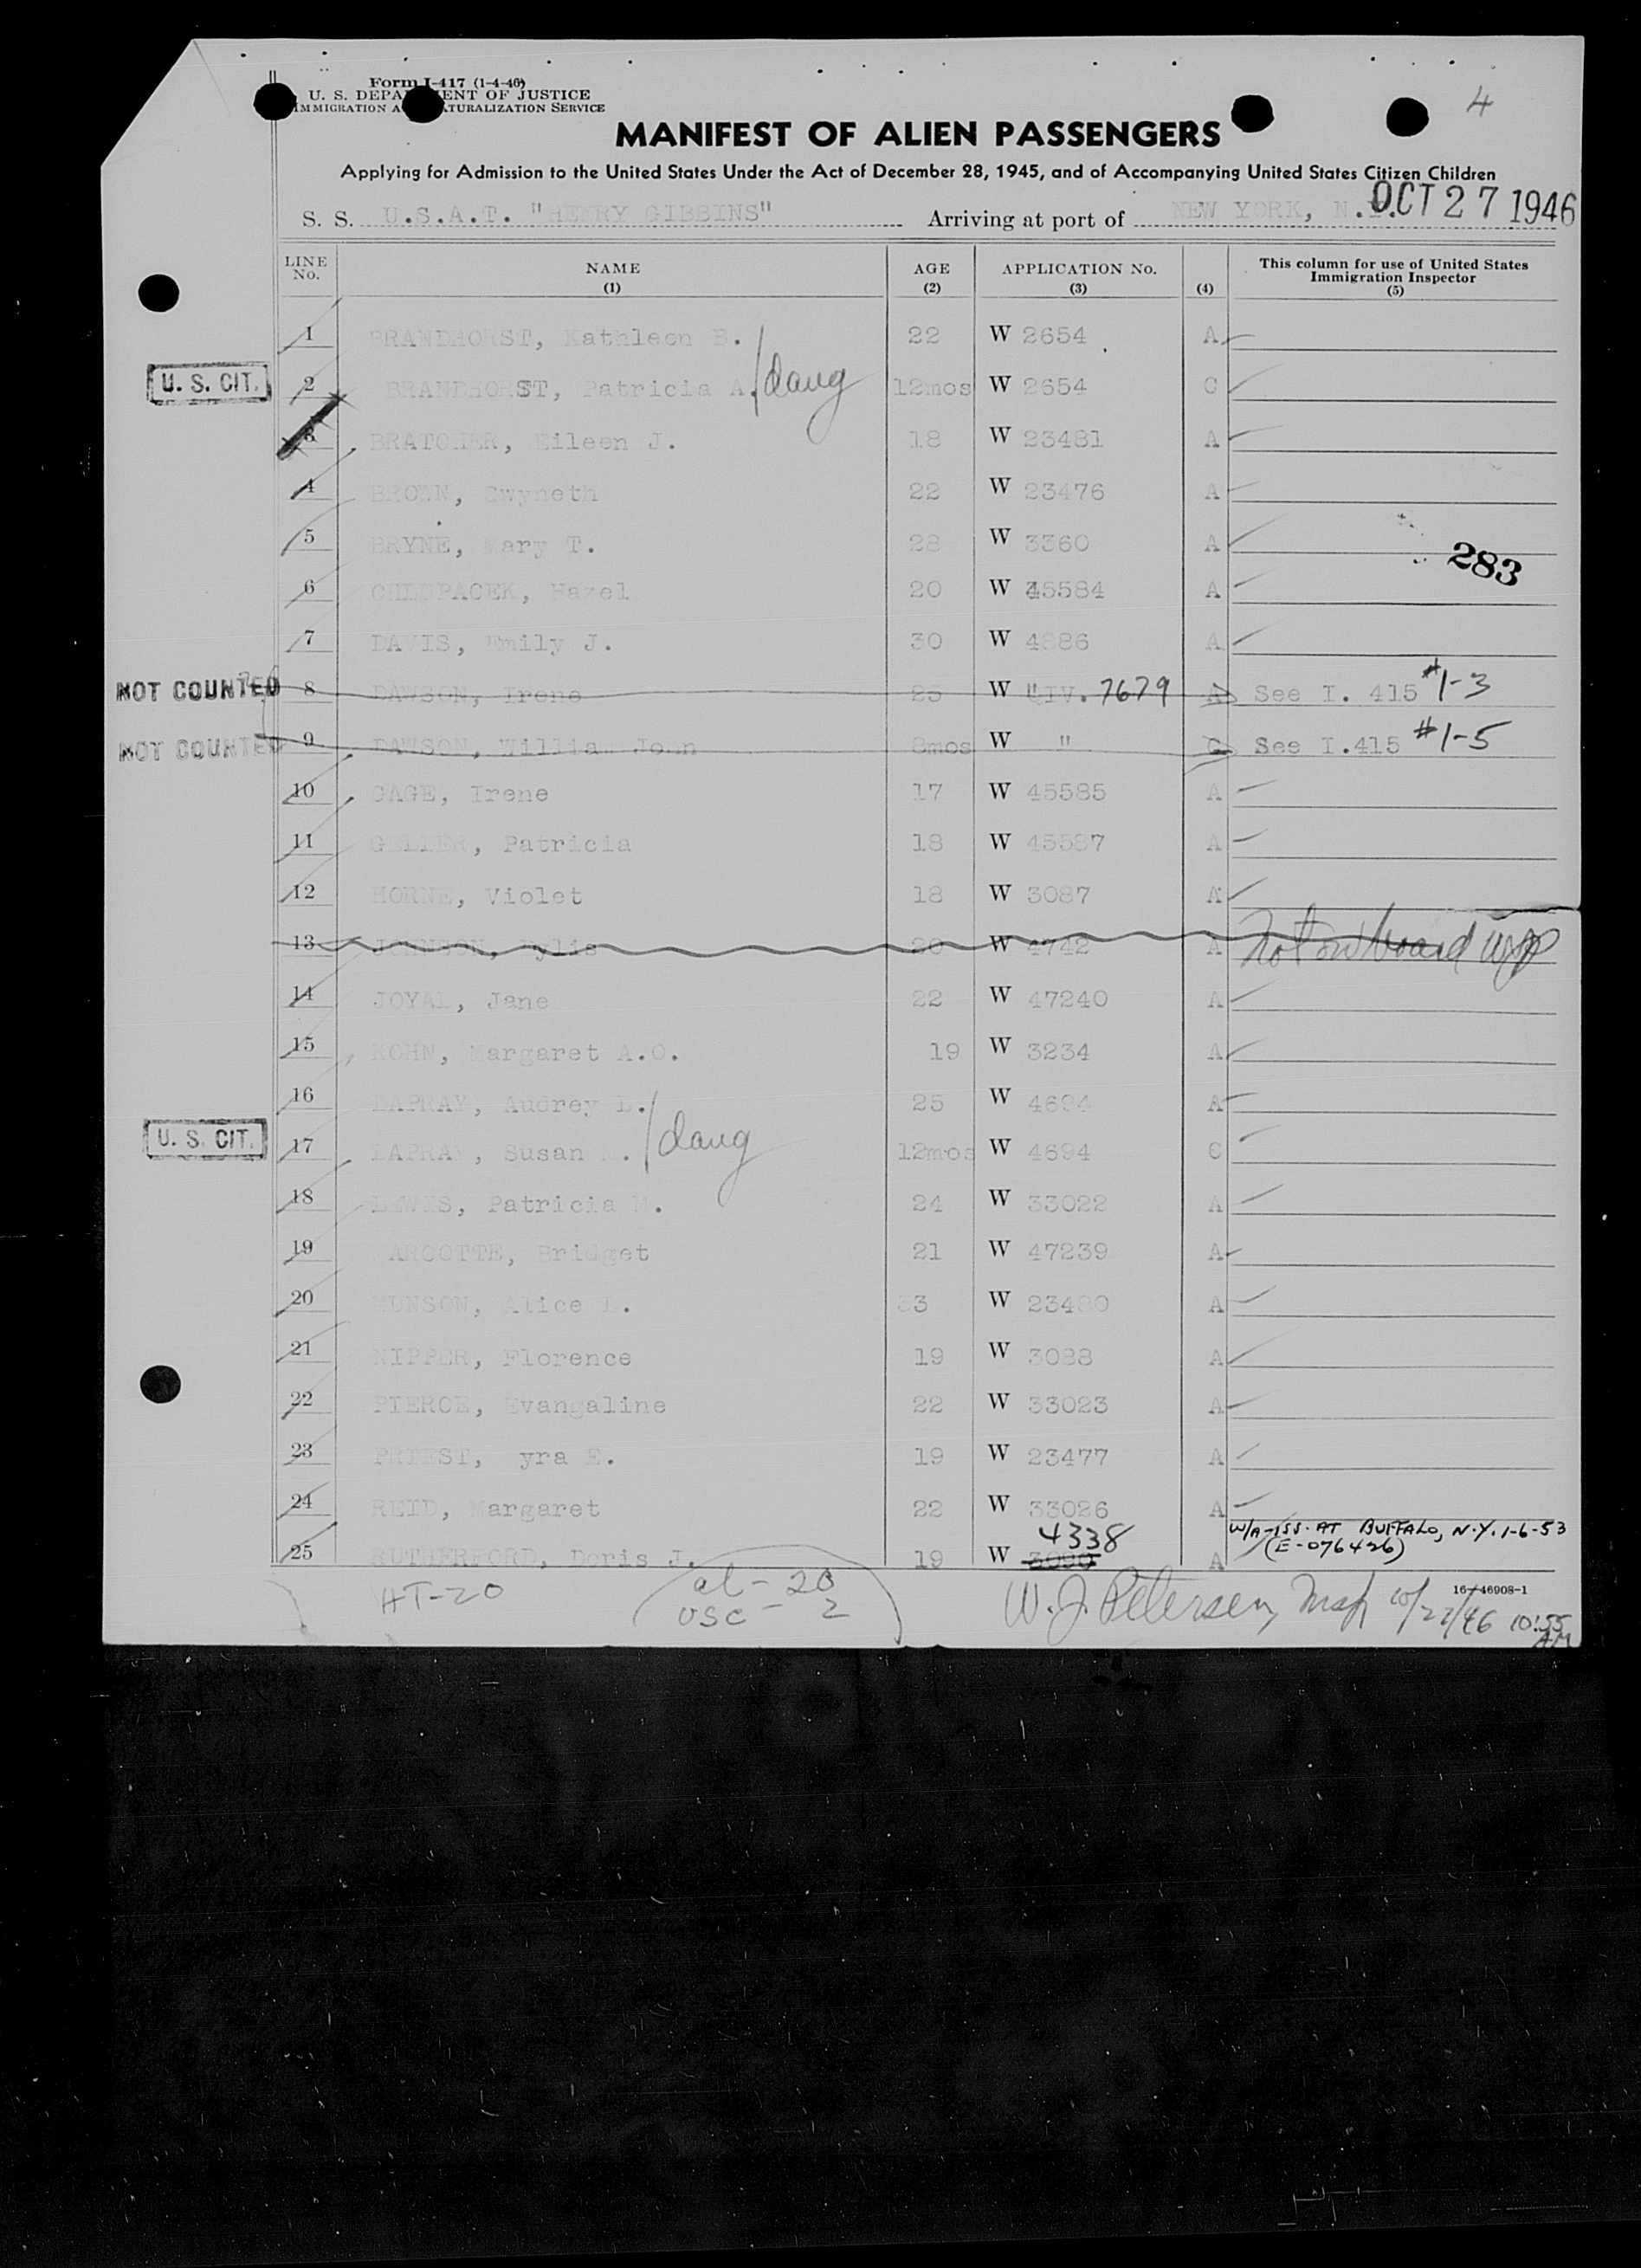 4
Form I-417 (1-4-46)
U. S. DEPARTMENT OF JUSTICE
IMMIGRATION AND NATURALIZATION SERVICE
MANIFEST OF ALIEN PASSENGERS
Applying for Admission to the United States Under the Act of December 28, 1945, and of Accompanying United States Citizen Children
S. S. U.S.A.T. "HENRY GIBBINS" Arriving at port of NEW YORK, N. OCT 27 1946
LINE No. NAME (1) AGE (2) APPLICATION No. (3) (4) This column for use of United States Immigration Inspector (5)
1 BRANDHORST, Kathleen B. 22 W 2654 A
U. S. CIT. 2 BRANDHORST, Patricia A. daug 12mos W 2654 C
3 BRATCHER, Eileen J. 18 W 23481 A
4 BROWN, Gwyneth 22 W 23476 A
5 BRYNE, Mary T. 28 W 3360 A
283
6 CHLUPACEK, Hazel 20 W 45584 A
7 DAVIS, Emily J. 30 W 4886 A
NOT COUNTED 8 DAWSON, Irene 25 W LIV. 7679 A See I. 415 #1-3
NOT COUNTED 9 DAWSON, William John 8mos W " C See I.415 #1-5
10 GAGE, Irene 17 W 45585 A
11 GELLER, Patricia 18 W 45587 A
12 HORNE, Violet 18 W 3087 A
13 JOHNSON, Sylis 20 W 4742 A Not on board WJP
14 JOYAL, Jane 22 W 47240 A
15 KOHN, Margaret A.O. 19 W 3234 A
16 LAPRAY, Audrey L. 25 W 4694 A
U. S. CIT. 17 LAPRAY, Susan . daug 12mos W 4694 C
18 LEWIS, Patricia M. 24 W 33022 A
19 MARCOTTE, Bridget 21 W 47239 A
20 MUNSON, Alice L. 33 W 23480 A
21 NIPPER, Florence 19 W 3088 A
22 PIERCE, Evangaline 22 W 33023 A
23 PRIEST, yra E. 19 W 23477 A
24 REID, Margaret 22 W 33026 A
W/A-ISS. AT BUFFALO, N.Y. 1-6-53
25 RUTHERFORD, Doris J. 19 W 3090 4338 A (E-076426)
HT-20 al-20 W. J. Petersen, Insp 10/27/46 10:55 AM
USC-2
16-46908-1